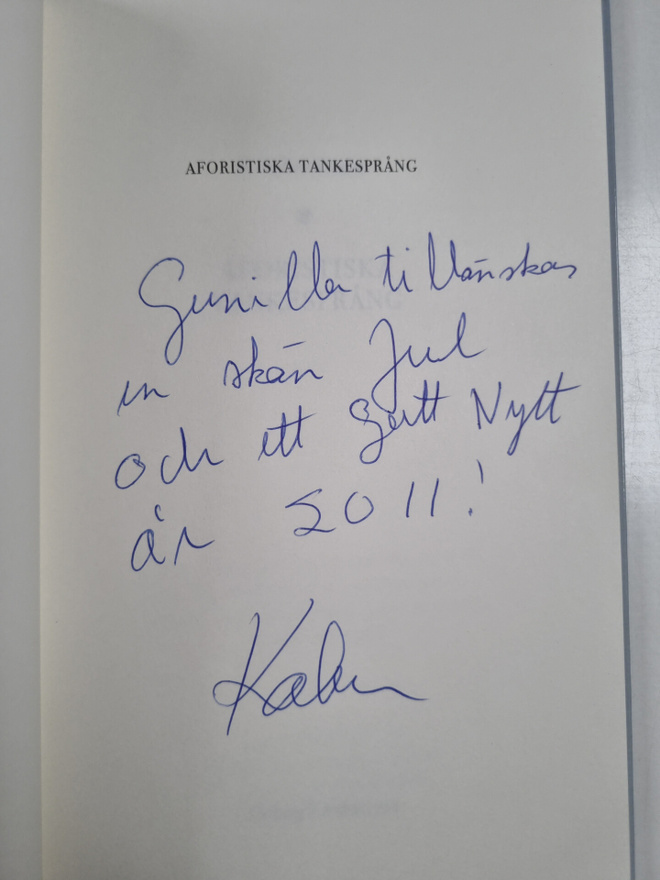 AFORISTISKA TANKESPRÅNG
Gunilla tillönskas
en skön Jul
och ett Gott Nytt
år 2011!